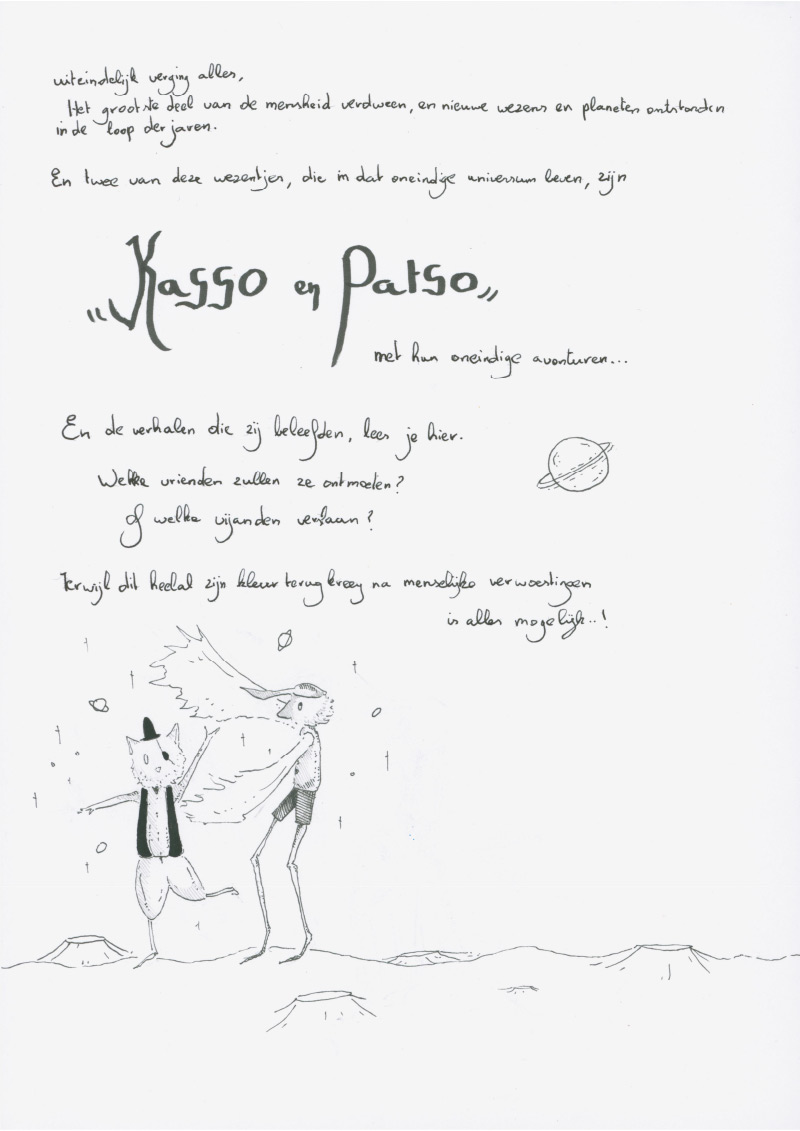 uiteindelijk verging alles,
Het grootste deel van de mensheid verdween, en nieuwe wezens en planeten ontstonden
in de loop der jaren.
En twee van deze wezentjes, die in dat oneindige universum leven, zijn
„Kasso en Patso„
met hun oneindige avonturen...
En de verhalen die zij beleefden, lees je hier.
Welke vrienden zullen ze ontmoeten?
Of welke vijanden verslaan?
Terwijl dit heelal zijn kleur terug kreeg na menselijke verwoestingen
is alles mogelijk..!